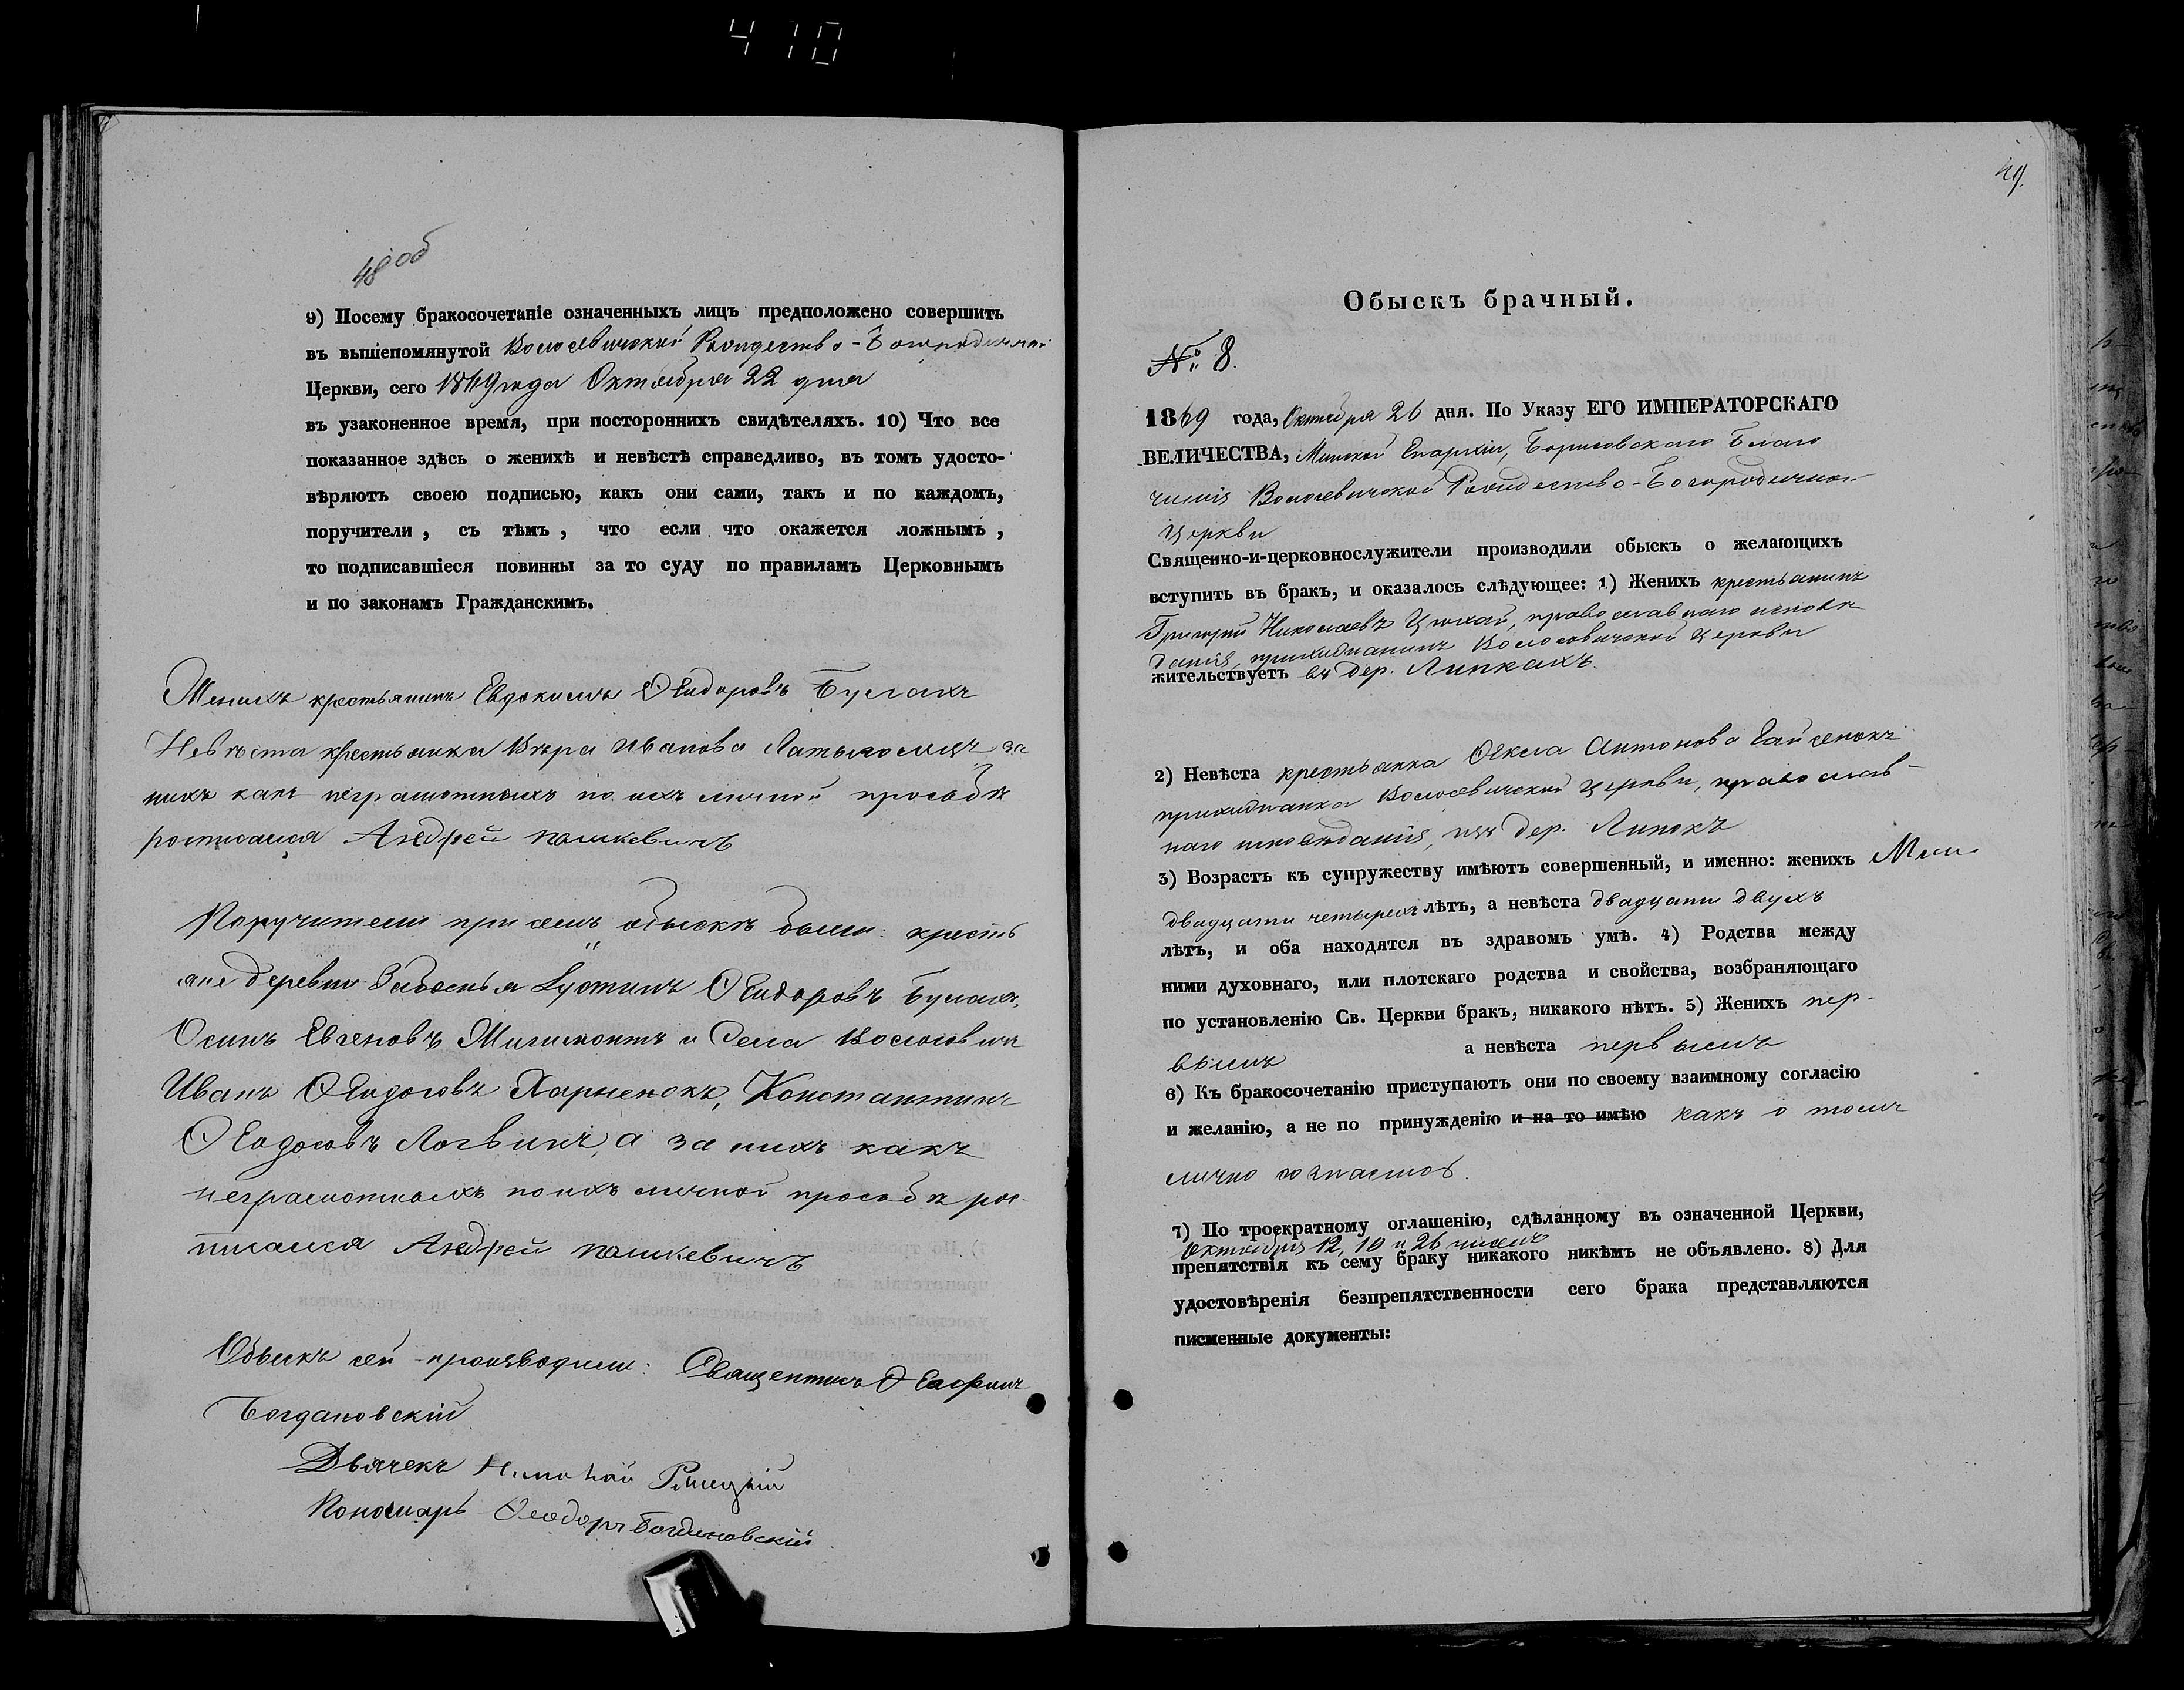 410
48 об
9) Посему бракосочетаніе означенныхъ лицъ предположено совершить
въ вышепомянутой Волосевичской Рождество-Богородичной
Церкви, сего 1869 года Октября 22 дня
въ узаконенное время, при постороннихъ свидѣтеляхъ. 10) Что все
показанное здѣсь о женихѣ и невѣстѣ справедливо, въ томъ удосто-
вѣряютъ своею подписью, какъ они сами, такъ и по каждомъ,
поручители, съ тѣмъ, что если что окажется ложнымъ,
то подписавшіеся повинны за то суду по правиламъ Церковнымъ
и по законамъ Гражданскимъ.
Женихъ крестьянинъ Евдокимъ Ѳеодоровъ Булахъ
Невѣста крестьянка Вѣра Иванова за
нихъ какъ неграмотныхъ по ихъ личной просьбѣ
росписался Андрей Пашкевичъ
Поручители при семъ обыскѣ были: кресть
яне деревни Забоенья Іустинъ Ѳеодоровъ Булахъ,
Осипъ Евгеновъ Жигимонтъ и села Волосовичъ
Иванъ Ѳеодосовъ Харненокъ, Константинъ
Ѳеодосовъ Логвинъ, а за нихъ какъ
неграмотныхъ по ихъ личной просьбѣ рос-
писался Андрей Пашкевичъ
Обыскъ сей производили: Священникъ
Богдановскій
Дьячекъ Николай
Пономарь Ѳеодоръ Богдановскій
49.
Обыскъ брачный.
№ 8.
1869 года, Октября 26 дня. По Указу ЕГО ИМПЕРАТОРСКАГО
ВЕЛИЧЕСТВА, Минской Епархіи, Борисовскаго Благо
чинія Волосевичской Рождество-Богородичной
Церкви
Священно-и-церковнослужители производили обыскъ о желающихъ
вступить въ бракъ, и оказалось слѣдующее: 1) Женихъ крестьянинъ
Григорій Николаевъ Цюхай, православнаго исповѣ
данія, прихожанинъ Волосовичской церкви
жительствуетъ въ дер. Липкахъ.
2) Невѣста крестьянка Ѳекла Антонова Гайсенокъ
прихожанка Волосевичской церкви, православ-
наго исповѣданія, изъ дер. Липокъ
3) Возрастъ къ супружеству имѣютъ совершенный, и именно: женихъ
двадцати четырехъ лѣтъ, а невѣста двадцати двухъ
лѣтъ, и оба находятся въ здравомъ умѣ. 4) Родства между
ними духовнаго, или плотскаго родства и свойства, возбраняющаго
по установленію Св. Церкви бракъ, никакого нѣтъ. 5) Женихъ пер-
вымъ а невѣста первымъ
6) Къ бракосочетанію приступаютъ они по своему взаимному согласію
и желанію, а не по принужденію и на то имѣю какъ о томъ
лично
7) По троекратному оглашенію, сдѣланному въ означенной Церкви,
Октября 12, 19 и 26 чиселъ
препятствія къ сему браку никакого никѣмъ не объявлено. 8) Для
удостовѣренія безпрепятственности сего брака представляются
писменные документы: